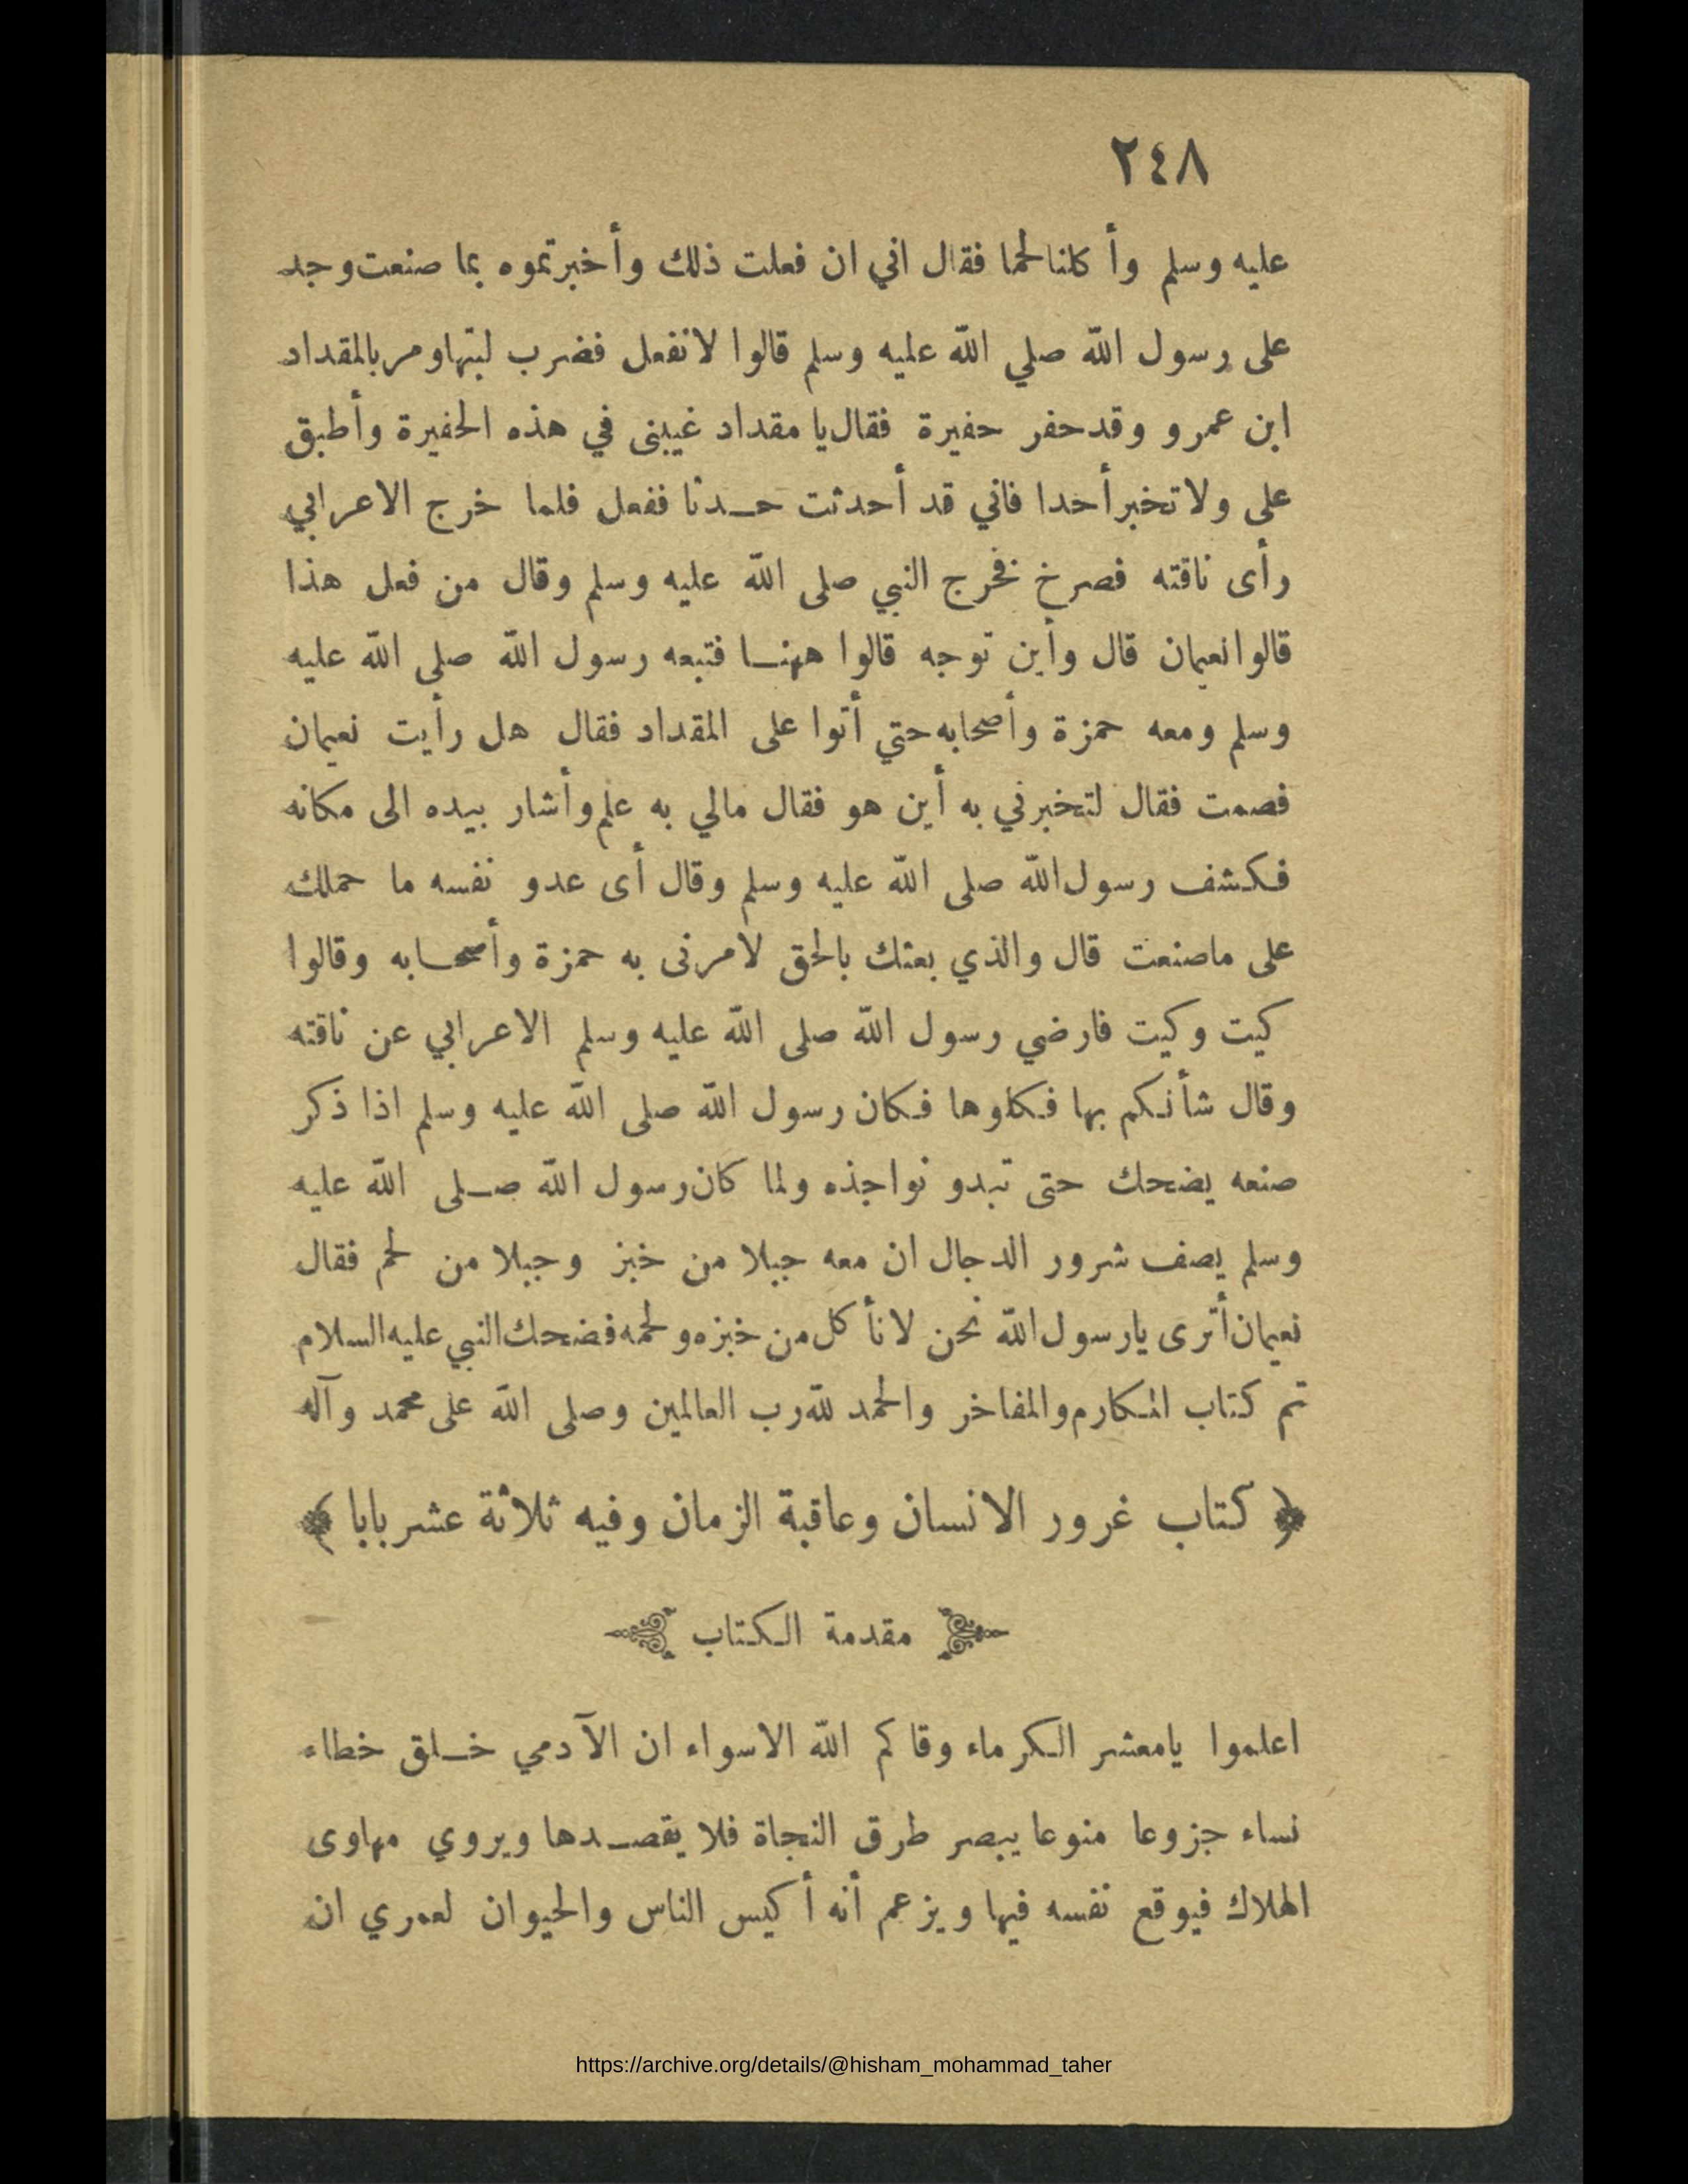 ٢٤٨
عليه وسلم وأكلنا لحما فقال اني ان فعلت ذلك وأخبرتموه بما صنعت وجد
على رسول الله صلي الله عليه وسلم قالوا لا نفعل فضرب لبتها ومر بالمقداد
ابن عمرو وقد حفر حفيرة فقال يا مقداد غيبنى في هذه الحفيرة وأطبق
على ولا تخبر أحدا فاني قد أحدثت حـدثا ففعل فلما خرج الاعرابي
رأى ناقته فصرخ فخرج النبي صلى الله عليه وسلم وقال من فعل هذا
قالوا نعيمان قال وأين توجه قالوا ههنـا فتبعه رسول الله صلى الله عليه
وسلم ومعه حمزة وأصحابه حتي أتوا على المقداد فقال هل رأيت نعيمان
فصمت فقال لتخبرني به أين هو فقال مالي به علم وأشار بيده الى مكانه
فكشف رسول الله صلى الله عليه وسلم وقال أى عدو نفسه ما حملك
على ماصنعت قال والذي بعثك بالحق لامرنى به حمزة وأصحـابه وقالوا
كيت وكيت فارضي رسول الله صلى الله عليه وسلم الاعرابي عن ناقته
وقال شأنكم بها فكلوها فكان رسول الله صلى الله عليه وسلم اذا ذكر
صنعه يضحك حتى تبدو نواجذه ولما كان رسول الله صـلى الله عليه
وسلم يصف شرور الدجال ان معه جبلا من خبز وجبلا من لحم فقال
نعيمان أترى يارسول الله نحن لا نأكل من خبزه ولحمه فضحك النبي عليه السلام
تم كتاب المكارم والمفاخر والحمد لله رب العالمين وصلى الله على محمد وآله
﴿ كتاب غرور الانسان وعاقبة الزمان وفيه ثلاثة عشر بابا ﴾
مقدمة الكتاب
اعلموا يامعشر الكرماء وقاكم الله الاسواء ان الآدمي خـلق خطاء
نساء جزوعا منوعا يبصر طرق النجاة فلا يقصـدها ويروي مهاوى
الهلاك فيوقع نفسه فيها ويزعم أنه أكيس الناس والحيوان لعمري ان
https://archive.org/details/@hisham_mohammad_taher